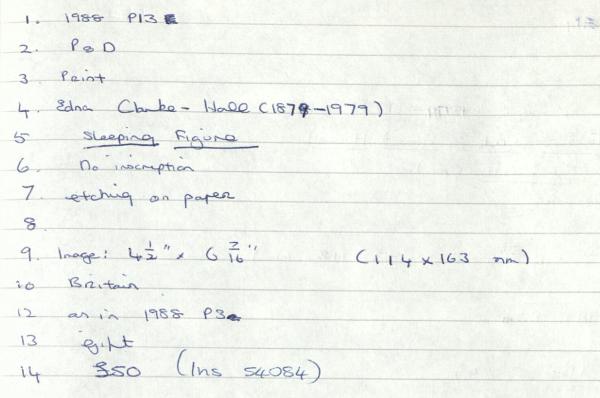 1. 1988 P13
2. P & D
3 Print
4. Edna Clarke-Hall (1879-1979)
5 Sleeping Figure
6. No inscription
7. etching on paper
8.
9. Image: 4 1/2" x 6 7/16" (114 x 163 mm)
10 Britain
12 as in 1988 P3
13 gift
14 £50 (Ins 54084)